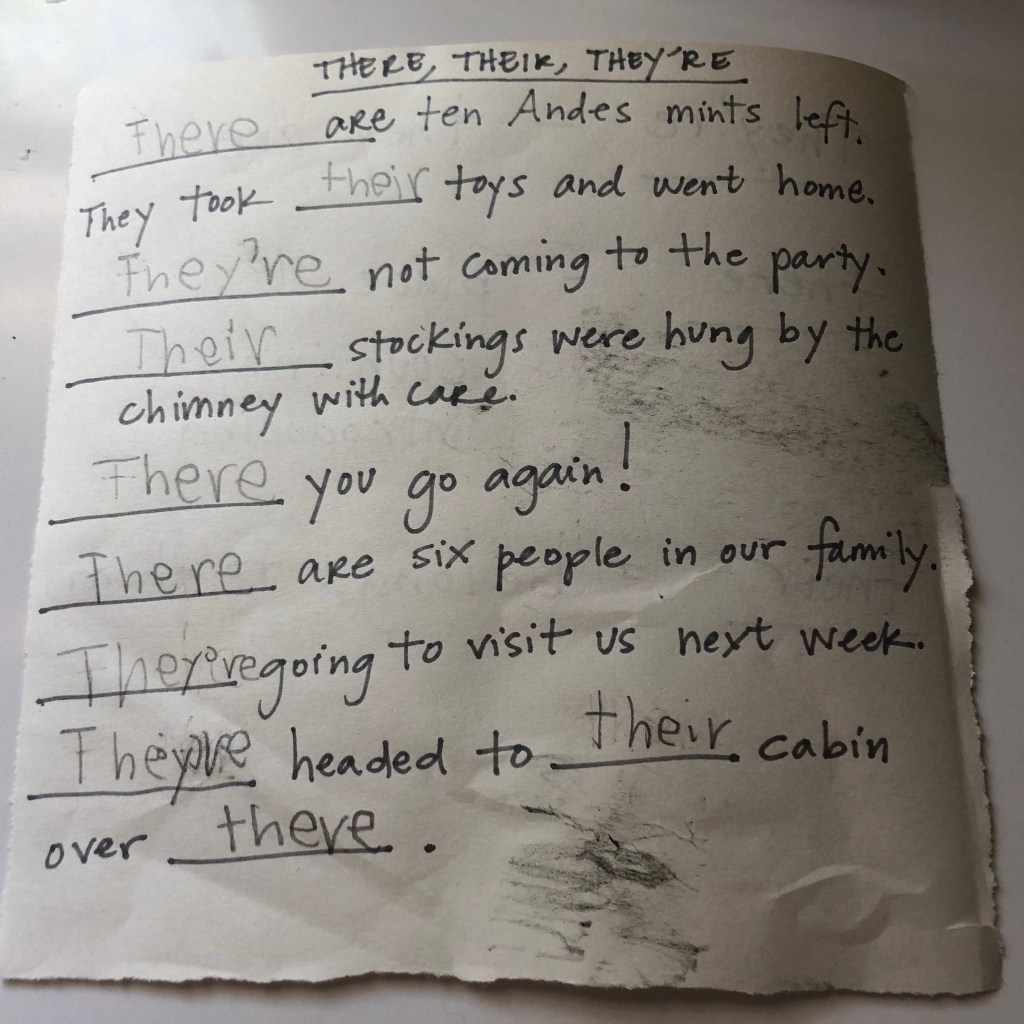 THERE, THEIR, THEY'RE
There are ten Andes mints left.
They took their toys and went home.
They're not coming to the party.
Their stockings were hung by the
chimney with care.
There you go again!
There are six people in our family.
They're going to visit us next week.
They're headed to their cabin
over there.